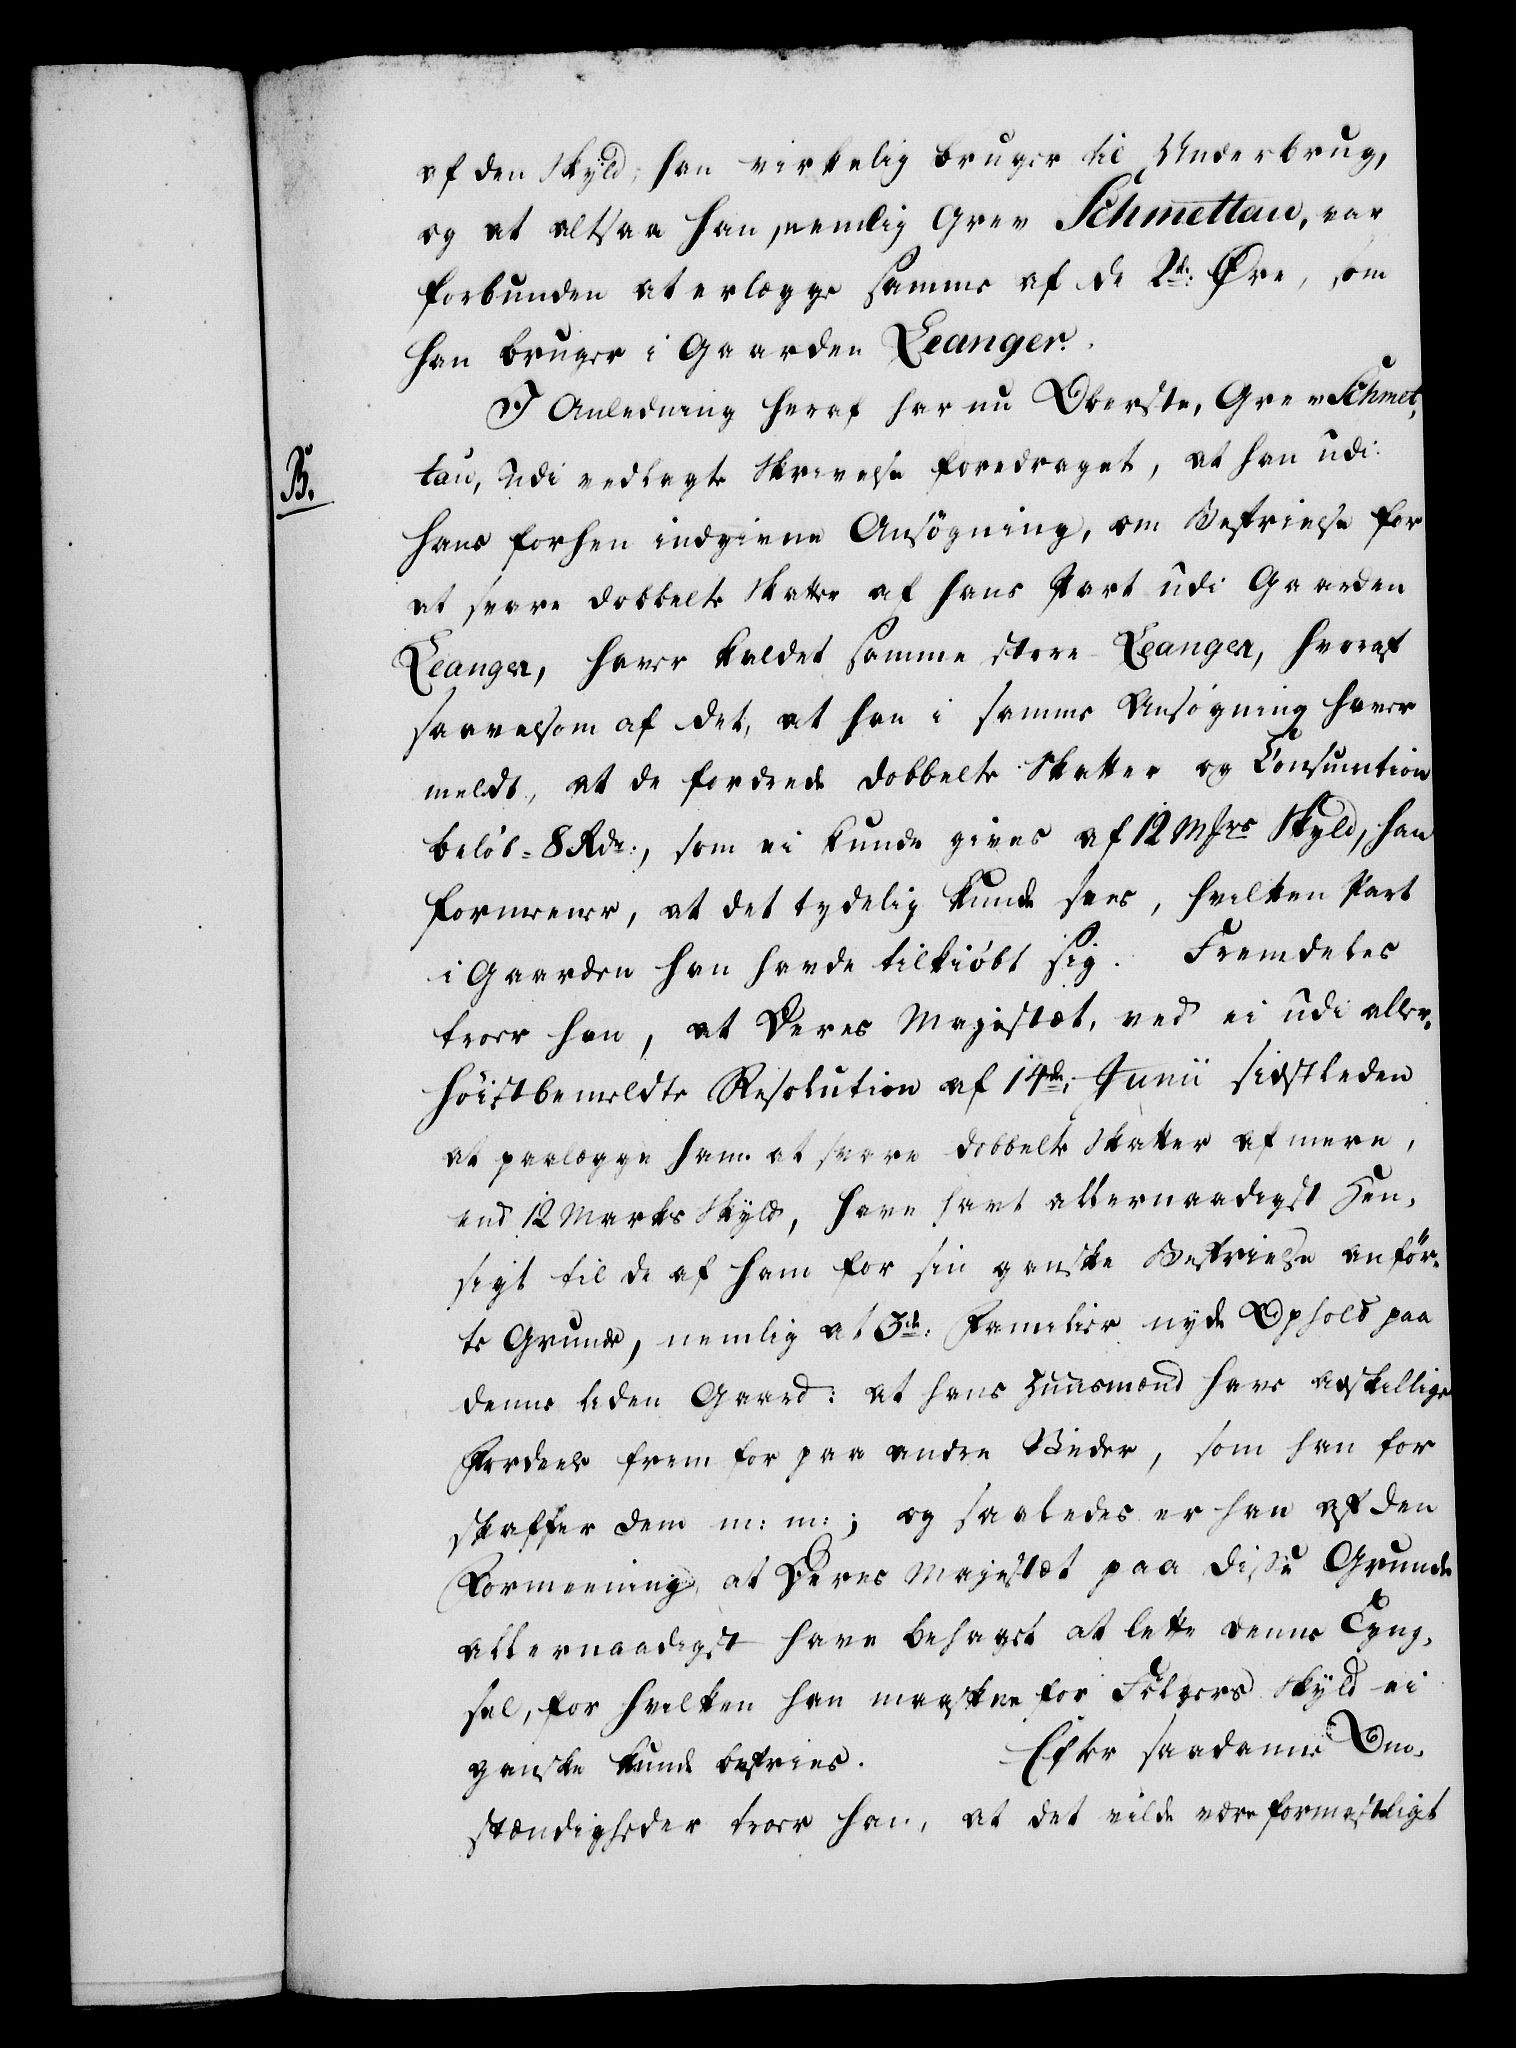 af den Skyld, han virkelig bruger til Underbrug,
og at altsaa han, nemlig Grev Schmettau, var
forbunden at erlægge samme af de 2de: Øre, som
han bruger i Gaarden Leanger.
I Anledning heraf har nu Oberste, Grev Schmet,
B. tau, udi vedlagte Skrivelse foredraget, at han udi
hans forhen indgivne Ansøgning, om Befrielse for
at svare dobbelte Skatter af hans Part udi Gaarden
Leanger, haver kaldet samme store Leanger, hvoraf
saavelsom af det, at han i samme Ansøgning haver
meldt, at de fordrede dobbelte Skatter og Consumtion
beløb = 8 Rdr:, som ei kunde gives af 12 Mrs Skyld, han
formener, at det tydelig kunde sees, hvilken Part
i Gaarden han havde tilkiøbt sig. Fremdeles
troer han, at Deres Majestæt, ved ei udi aller,
høistbemeldte Resolution af 14de: Junii sidstleden
at paalægge ham at svare dobbelte Skatter af mere,
end 12 Marks Skyld, have havt allernaadigst Hen,
sigt til de af ham for sin ganske Befrielse anför,
te Grunde, nemlig at 3de: Familier nyde Ophold paa
denne liden Gaard: at hans Huusmænd have adskillige
Fordeele frem for paa andre Stæder, som han for
skaffer dem m: m:; og saaledes er han af den
Formeening, at Deres Majestæt paa disse Grunde
allernaadigst have behaget at lette denne Tyng,
sel, for hvilken han maaskee for Følgers Skyld ei
ganske kunde befries. Efter saadanne Om,
stændigheder troer han, at det vilde være formasteligt